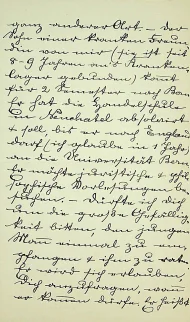 ganz anderer Art. – Der
Sohn einer kranken Freun-
din von mir (sie ist seit
8-9 Jahren ans Kranken-
lager gebunden) kommt
für 2 Semester nach Bern
Er hat die Handelschule
in Neuchatel absolviert
& soll, bis er nach England
darf (ich glaube in 1 Jahr)
an die Universität Bern.
Er möchte juristische & phil-
sophische Vorlesungen be-
suchen. – Dürfte ich dich
um die große Gefällig-
keit bitten, den jungen
Mann einmal zu em-
pfangen & ihm zu raten.
Er wird sich erlauben,
Dich anzufragen, wann
er kommen dürfe. Er heißt